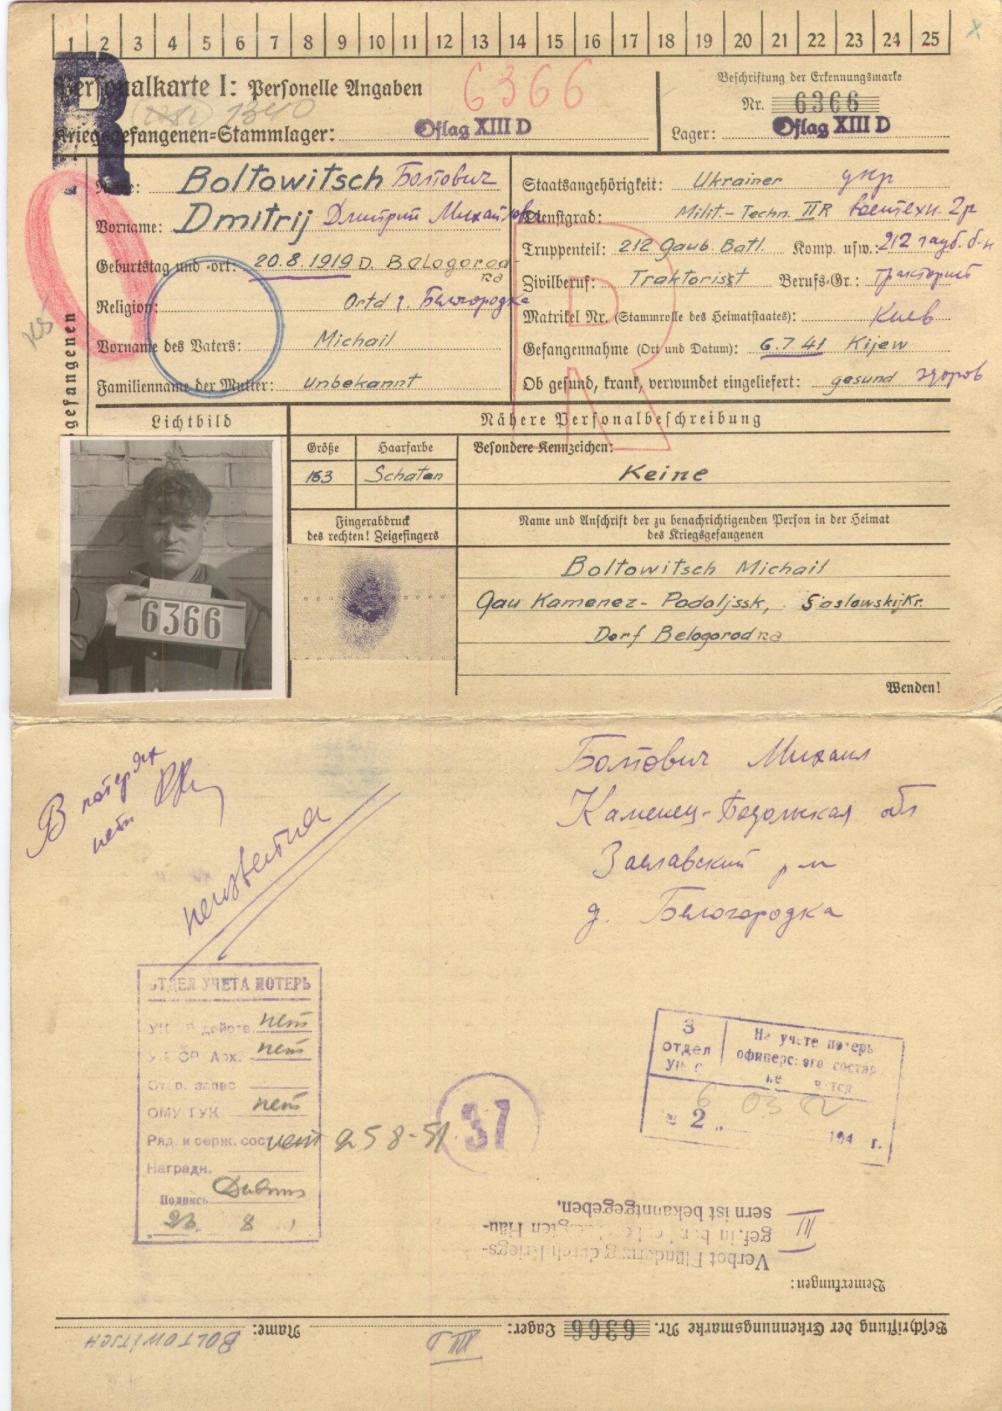 1 2 3 4 5 6 7 8 9 10 11 12 13 14 15 16 17 18 19 20 21 22 23 24 25
Personalkarte I: Personelle Angaben
6366
Beschriftung der Erkennungsmarke
Nr. 6366
1340
Kriegsgefangenen-Stammlager: Oflag XIII D
Lager: Oflag XIII D
R
gefangenen
Name: Boltowitsch Болтович
Staatsangehörigkeit: Ukrainer укр
Vorname: Dmitrij Дмитрий Михайлович
Dienstgrad: Milit.-Techn. II R воентехн. 2 р
Geburtstag und -ort: 20.8.1919 D. Belogorodka
Truppenteil: 212 Haub. Batl. Komp. usw.: 212 гауб. б-н
Religion: Ortd д. Белгородка
Zivilberuf: Traktorist Berufs-Gr.: тракторист
Matrikel Nr. (Stammrolle des Heimatstaates): Киев
Vorname des Vaters: Michail
Gefangennahme (Ort und Datum): 6.7.41 Kijew
Familienname der Mutter: Unbekannt
Ob gesund, krank, verwundet eingeliefert: gesund здоров
Lichtbild
Nähere Personalbeschreibung
Größe Haarfarbe Besondere Kennzeichen:
163 Schaten Keine
Fingerabdruck
des rechten! Zeigefingers
Name und Anschrift der zu benachrichtigenden Person in der Heimat
des Kriegsgefangenen
6366
Boltowitsch Michail
Gau Kamenez-Podoljssk, Saslowskij Kr.
Dorf Belogorodka
Wenden!
В потерях
нет
неизвестна
Болтович Михаил
Каменец-Подольская обл
Заславский р-н
д. Белогородка
ОТДЕЛ УЧЕТА ПОТЕРЬ
действ. нет
Арх. нет
Отд. запас
ОМУ ГУК нет
Ряд. и серж. сост нет 258-51
Наградн.
Подпись
23. 8
37
3
отдел
На учете потерь
офицерского состава
не
2
194 г.
Verbot
sern ist bekanntgegeben.
III
Bemerkungen:
Beschriftung der Erkennungsmarke Nr. 6366 Lager: XIII D Name: BOLTOWITSCH